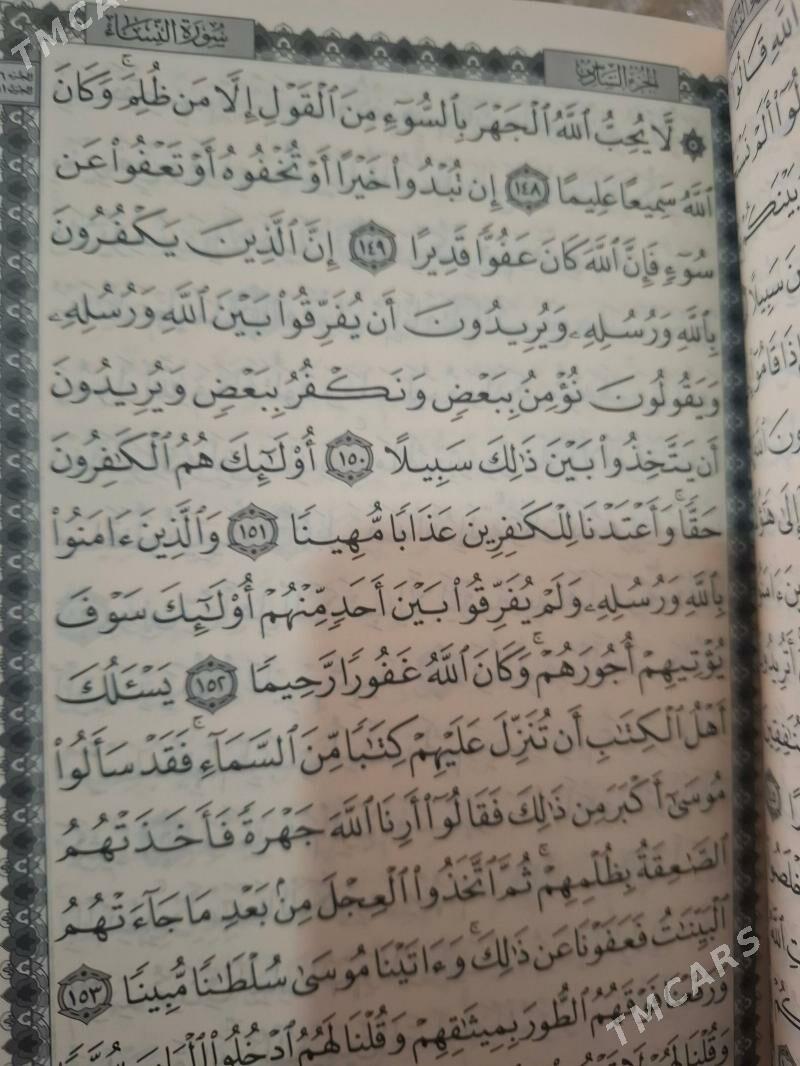 TMCARS
سُورَةُ النِّسَاءِ
الجُزءُ السَّادِسُ
۞ لَّا يُحِبُّ ٱللَّهُ ٱلْجَهْرَ بِٱلسُّوٓءِ مِنَ ٱلْقَوْلِ إِلَّا مَن ظُلِمَ ۚ وَكَانَ
ٱللَّهُ سَمِيعًا عَلِيمًا ١٤٨ إِن تُبْدُوا۟ خَيْرًا أَوْ تُخْفُوهُ أَوْ تَعْفُوا۟ عَن
سُوٓءٍ فَإِنَّ ٱللَّهَ كَانَ عَفُوًّا قَدِيرًا ١٤٩ إِنَّ ٱلَّذِينَ يَكْفُرُونَ
بِٱللَّهِ وَرُسُلِهِۦ وَيُرِيدُونَ أَن يُفَرِّقُوا۟ بَيْنَ ٱللَّهِ وَرُسُلِهِۦ
وَيَقُولُونَ نُؤْمِنُ بِبَعْضٍ وَنَكْفُرُ بِبَعْضٍ وَيُرِيدُونَ
أَن يَتَّخِذُوا۟ بَيْنَ ذَٰلِكَ سَبِيلًا ١٥٠ أُو۟لَٰٓئِكَ هُمُ ٱلْكَٰفِرُونَ
حَقًّا ۚ وَأَعْتَدْنَا لِلْكَٰفِرِينَ عَذَابًا مُّهِينًا ١٥١ وَٱلَّذِينَ ءَامَنُوا۟
بِٱللَّهِ وَرُسُلِهِۦ وَلَمْ يُفَرِّقُوا۟ بَيْنَ أَحَدٍ مِّنْهُمْ أُو۟لَٰٓئِكَ سَوْفَ
يُؤْتِيهِمْ أُجُورَهُمْ ۗ وَكَانَ ٱللَّهُ غَفُورًا رَّحِيمًا ١٥٢ يَسْـَٔلُكَ
أَهْلُ ٱلْكِتَٰبِ أَن تُنَزِّلَ عَلَيْهِمْ كِتَٰبًا مِّنَ ٱلسَّمَآءِ ۚ فَقَدْ سَأَلُوا۟
مُوسَىٰٓ أَكْبَرَ مِن ذَٰلِكَ فَقَالُوٓا۟ أَرِنَا ٱللَّهَ جَهْرَةً فَأَخَذَتْهُمُ
ٱلصَّٰعِقَةُ بِظُلْمِهِمْ ۚ ثُمَّ ٱتَّخَذُوا۟ ٱلْعِجْلَ مِنۢ بَعْدِ مَا جَآءَتْهُمُ
ٱلْبَيِّنَٰتُ فَعَفَوْنَا عَن ذَٰلِكَ ۚ وَءَاتَيْنَا مُوسَىٰ سُلْطَٰنًا مُّبِينًا ١٥٣
وَرَفَعْنَا فَوْقَهُمُ ٱلطُّورَ بِمِيثَٰقِهِمْ وَقُلْنَا لَهُمُ ٱدْخُلُوا۟ ٱلْبَابَ سُجَّدًا
وَقُلْنَا لَهُمْ
TMCARS